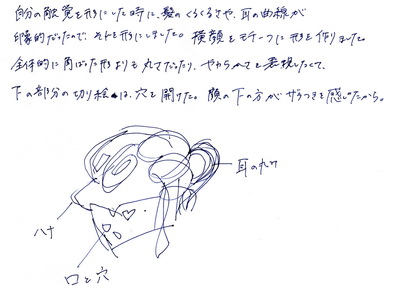 自分の触覚を形にした時に、髪のくるくるさや、耳の曲線が
印象的だったので、それを形にしました。横顔をモチーフに形を作りました
全体的に角ばった形よりも丸でだったり、やわらかさを表現したくて、
下の部分の切り絵は、穴を開けた。顔の下の方がザラつきを感じたから。
耳の丸み
ハナ
口と穴